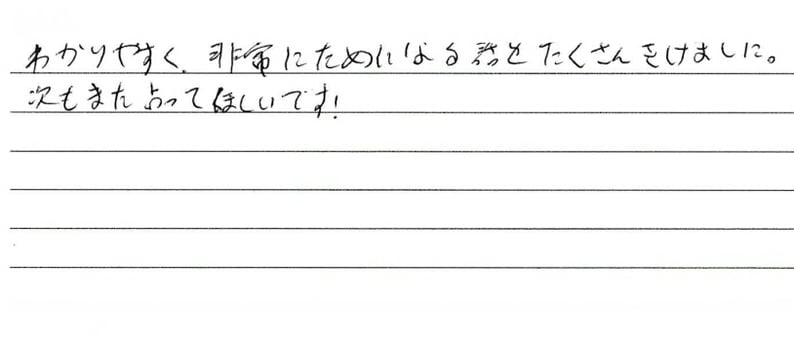 わかりやすく、非常にためになる話をたくさんきけました。
次もまた占ってほしいです!